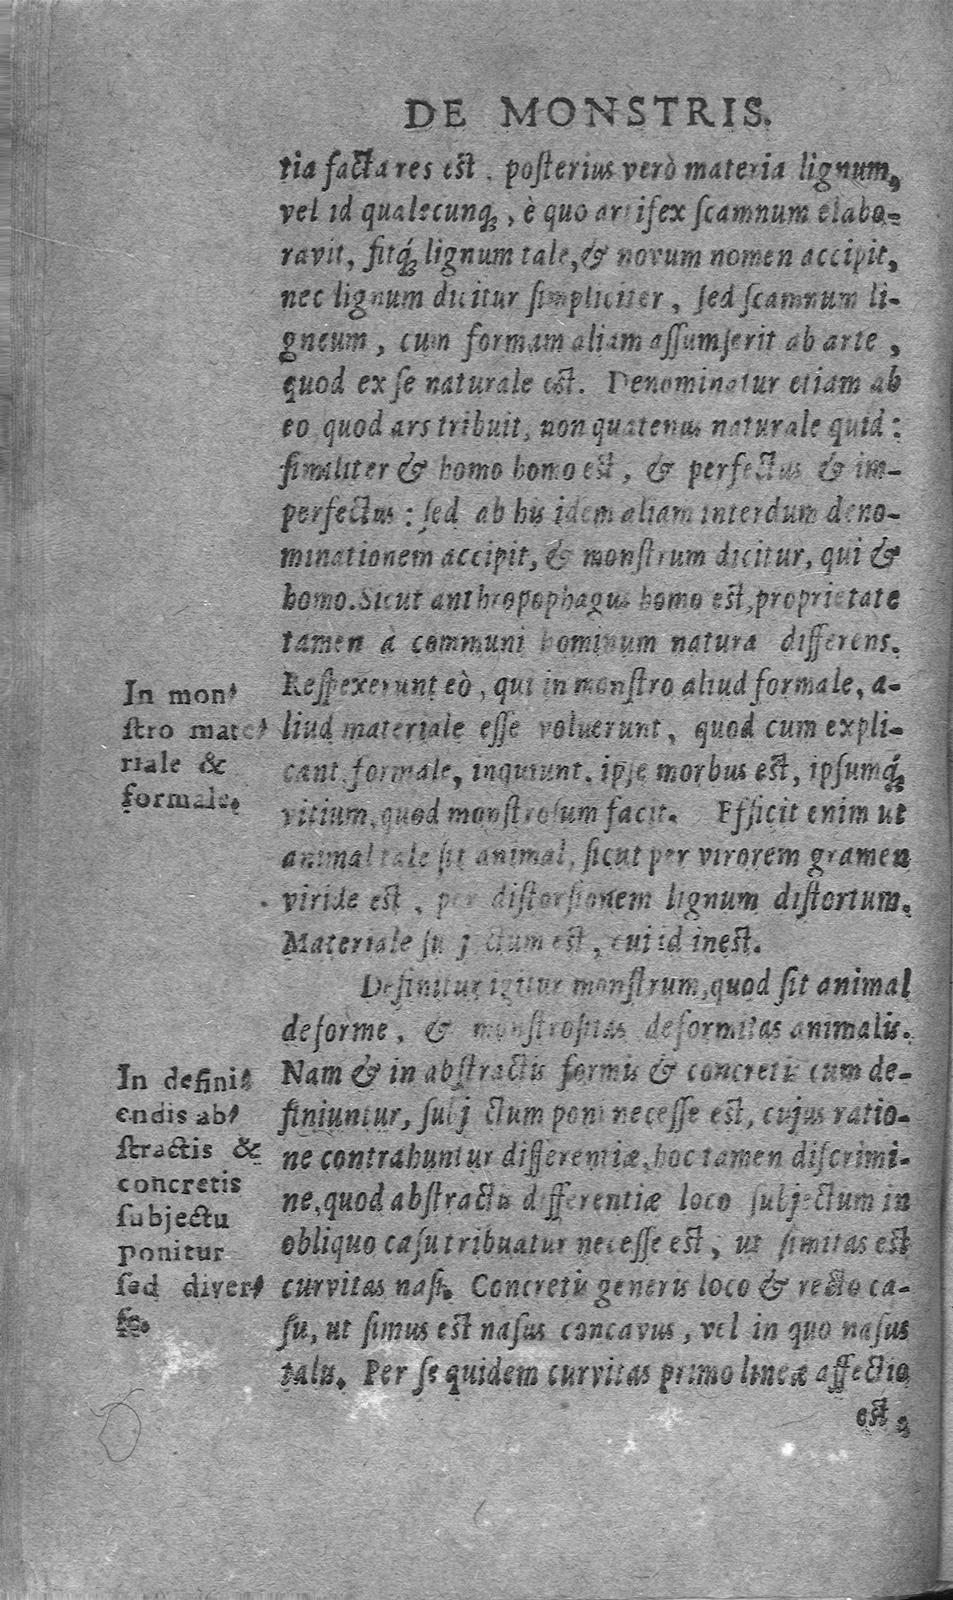 DE MONSTRIS.
tia facta res est. posterius verò materia lignum,
vel id qualecunq;, è quo artifex scamnum elabo-
ravit, fitq́; lignum tale, & novum nomen accipit,
nec lignum dicitur simpliciter, sed scamnum li-
gneum, cum formam aliam assumserit ab arte,
quod ex se naturale est. Denominatur etiam ab
eo quod ars tribuit, non quatenus naturale quid:
similiter & homo homo est, & perfectus & im-
perfectus: sed ab his idem aliam interdum deno-
minationem accipit, & monstrum dicitur, qui &
homo. Sicut anthropophagus homo est, proprietate
tamen à communi hominum natura differens.
Respexerunt eò, qui in monstro aliud formale, a-
liud materiale esse voluerunt, quod cum expli-
cant formale, inquiunt, ipse morbus est, ipsumq́;
vitium, quod monstrosum facit. Efficit enim ut
animal tale sit animal, sicut per virorem gramen
viride est, per distorsionem lignum distortum.
Materiale subjectum est, cui id inest.
Definitur igitur monstrum, quod sit animal
deforme, & monstrositas deformitas animalis.
Nam & in abstractis formis & concretis cum de-
finiuntur, subjectum poni necesse est, cujus ratio-
ne contrahuntur differentiæ, hoc tamen discrimi-
ne, quod abstractis differentiæ loco subjectum in
obliquo casu tribuatur necesse est, ut simitas est
curvitas nasi. Concretis generis loco & recto ca-
su, ut simus est nasus concavus, vel in quo nasus
talis. Per se quidem curvitas primo lineæ affectio
est,
In mon-
stro mate-
riale &
formale.
In defini-
endis ab-
stractis &
concretis
subjectu
ponitur
sed diver-
se.